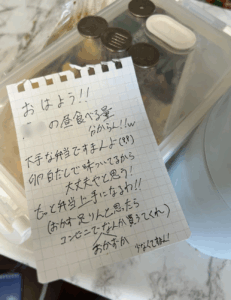 おはよう!!
の昼食べる量
分からん!!w
下手な弁当ですまんよ(笑)
卵白だしで味ついてるから
大丈夫やと思う!
もっと弁当上手になるわ!!
(おかず足りんと思ったら
コンビニでなんか買ってくれ)
おかずが 少なくてすまん!